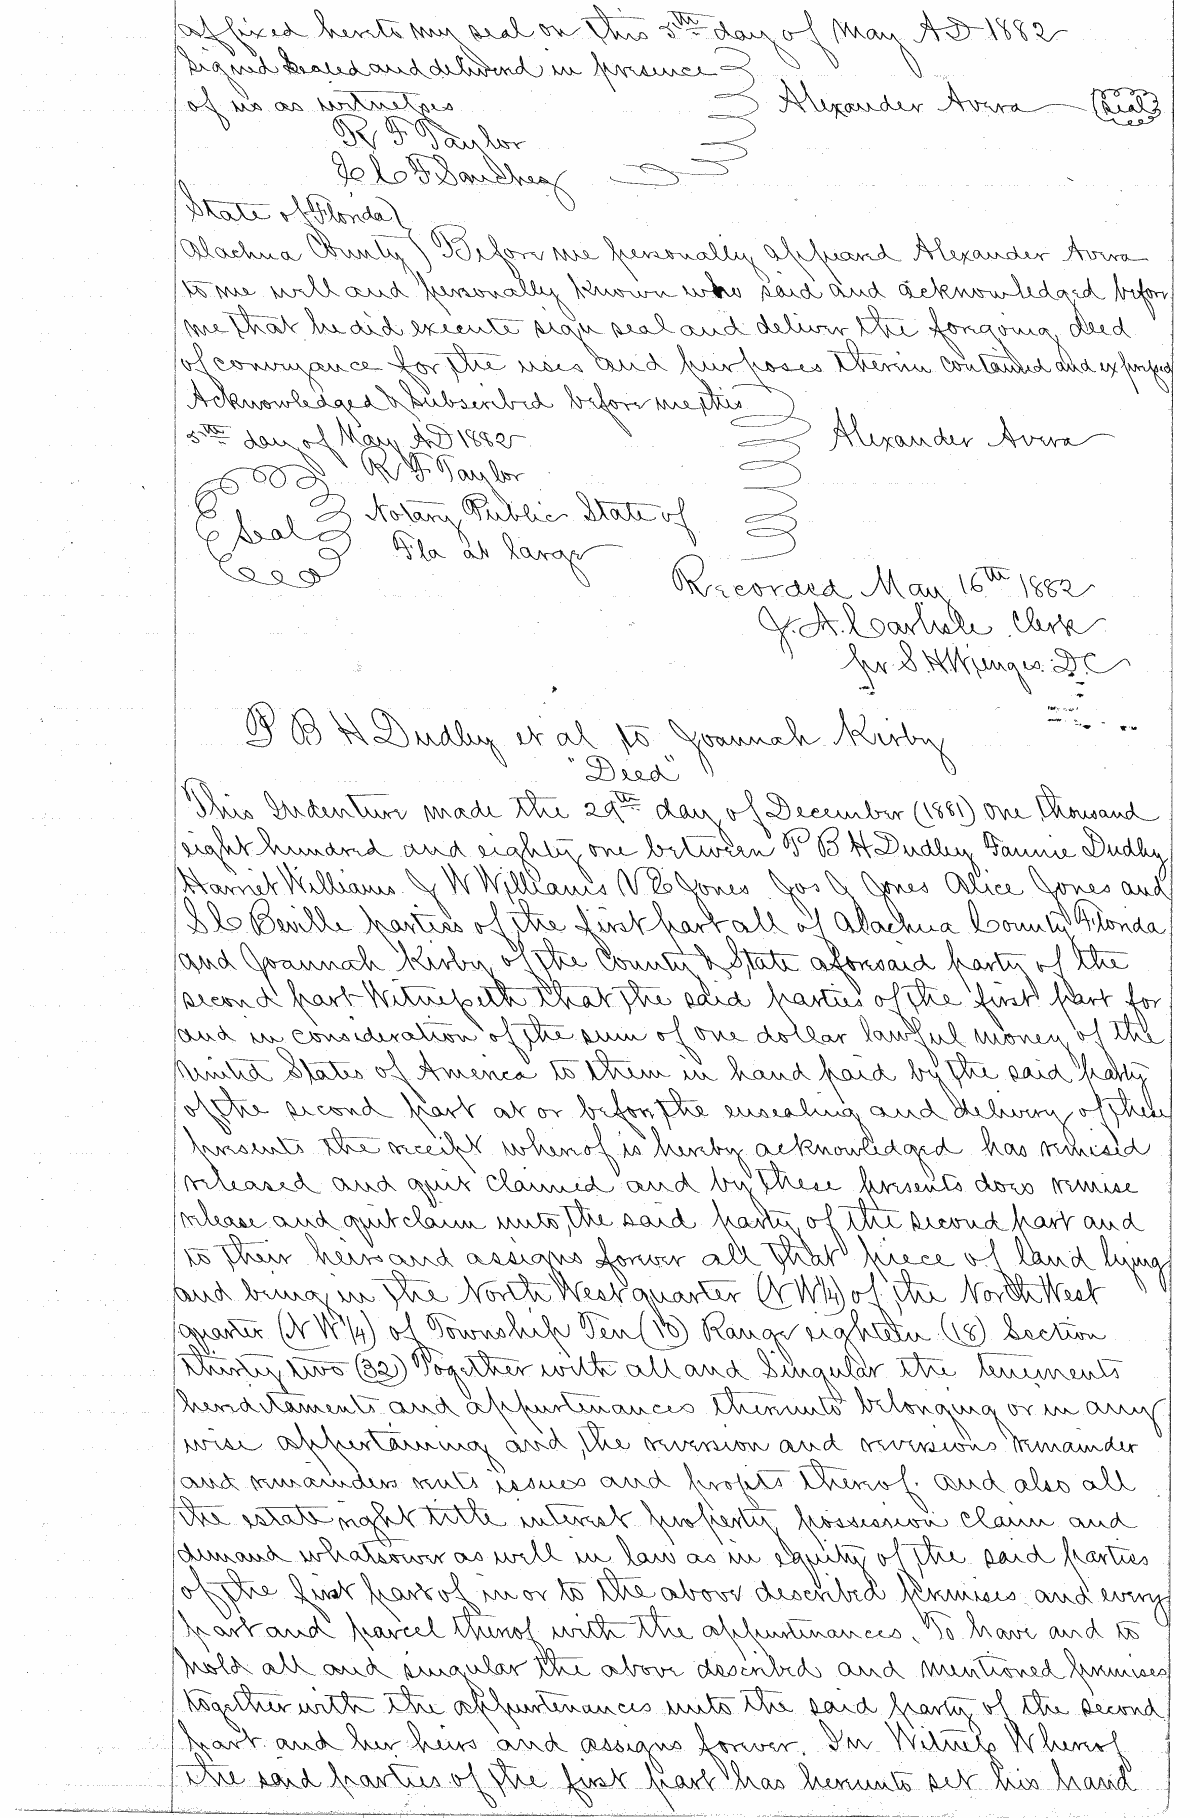 affixed hereto my seal on this 5th day of May AD 1882
Signed Sealed and delivered in presence
of us as witnesses
Alexander Avera (Seal)
R F Taylor
State of Florida)
Alachua County) Before me personally appeared Alexander Avera
to me well and personally known who said and acknowledged before
me that he did execute sign seal and deliver the foregoing deed
of conveyance for the uses and purposes therein contained and expressed
Acknowledged & Subscribed before me this
5th day of May AD 1882
Alexander Avera
R F Taylor
Seal
Notary Public State of
Fla at large
Recorded May 16th 1882
J. A. Carlisle Clerk
pr S. H. Wienges D.C
P B H Dudley et al to Joannah Kirby
"Deed"
This Indenture made the 29th day of December (1881) one thousand
eight hundred and eighty one between P B H Dudley Fannie Dudley
Harriet Williams J W Williams V E Jones Jos A Jones Alice Jones and
S C Beville parties of the first part all of Alachua County Florida
and Joannah Kirby of the County & State aforesaid party of the
second part Witnesseth that the said parties of the first part for
and in consideration of the sum of one dollar lawful money of the
United States of America to them in hand paid by the said party
of the second part at or before the ensealing and delivery of these
presents the receipt whereof is hereby acknowledged has remised
released and quit claimed and by these presents does remise
release and quitclaim unto the said party of the second part and
to their heirs and assigns forever all that piece of land lying
and being in the North West quarter (N W ¼) of the North West
quarter (N W ¼) of Township Ten (10) Range eighteen (18) Section
thirty two (32) Together with all and Singular the tenements
hereditaments and appurtenances thereunto belonging or in any
wise appertaining and the reversion and reversions remainder
and remainders rents issues and profits thereof. and also all
the estate right title interest property possession claim and
demand whatsoever as well in law as in equity of the said parties
of the first part of in or to the above described premises and every
part and parcel thereof with the appurtenances. To have and to
hold all and singular the above described and mentioned premises
together with the appurtenances unto the said party of the second
part and her heirs and assigns forever. In Witness Whereof
the said parties of the first part has hereunto set his hand